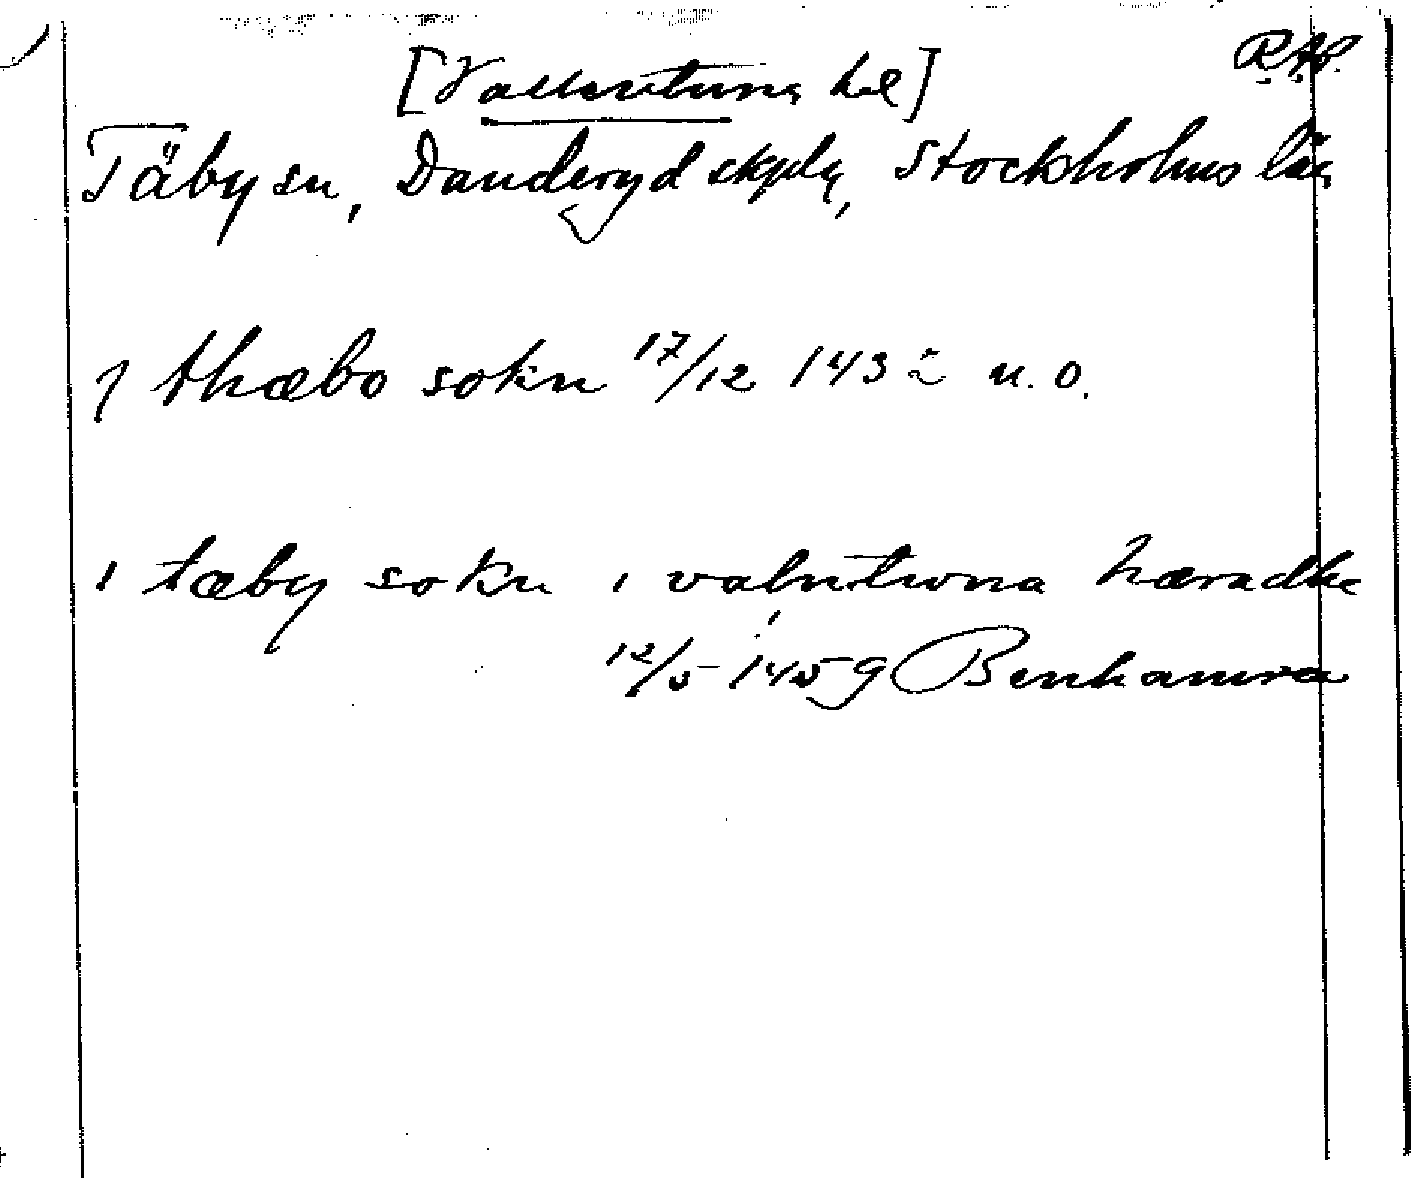 RAP.
[Vallentuna hd]
Täby sn, Danderyd skplg, Stockholms län
J thæbo sokn 17/12 1432 u.o.
i tæby sokn i valntwna hæradhe
12/5 1459 Benhamra